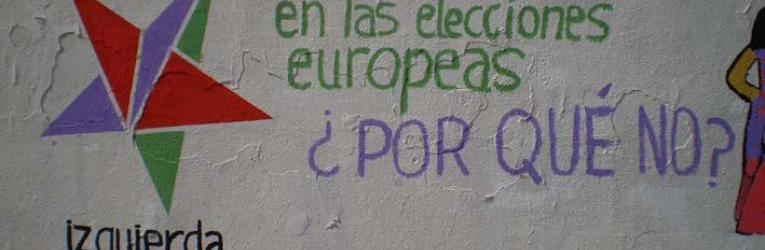 en las elecciones
europeas
¿POR QUÉ NO?
izquierda